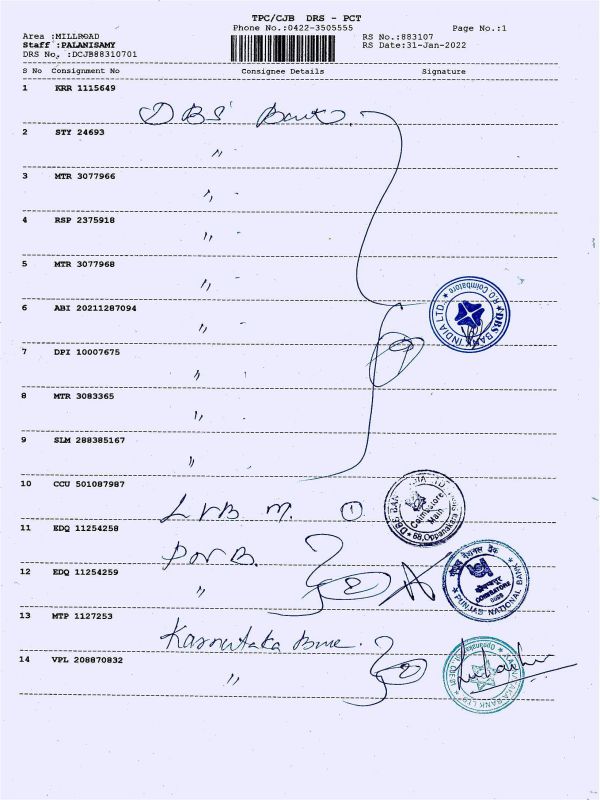 TPC/CJB DRS - PCT
Phone No.:0422-3505555
Page No.:1
Area :MILLROAD
RS No.:883107
Staff :PALANISAMY
RS Date:31-Jan-2022
DRS No. :DCJB88310701
S No Consignment No Consignee Details Signature
1 KRR 1115649
DBS Bank.
2 STY 24693
"
3 MTR 3077966
"
4 RSP 2375918
"
5 MTR 3077968
"
6 ABI 20211287094
"
DBS BANK INDIA LTD. R.O Coimbatore
7 DPI 10007675
"
8 MTR 3083365
"
9 SLM 288385167
"
10 CCU 501087987
LVB M. 1
DBS BANK INDIA LTD Coimbatore Main 68, Oppanakara
11 EDQ 11254258
PNB.
12 EDQ 11254259
"
पंजाब नैशनल बैंक
COIMBATORE
PUNJAB NATIONAL BANK
13 MTP 1127253
Karnataka
14 VPL 208870832
"
KARNATAKA BANK LTD.